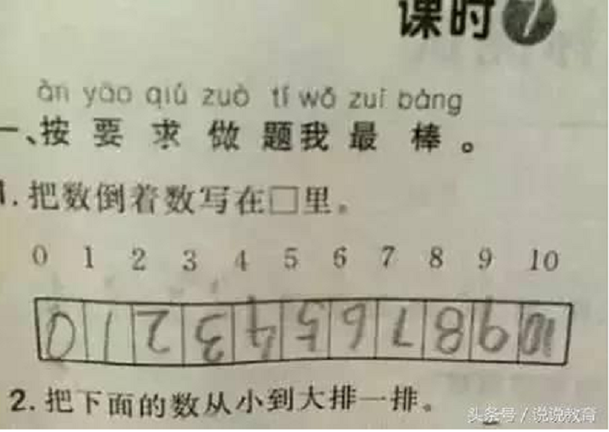 课时7
àn yāo qiú zuò tí wǒ zuì bàng
一、按要求做题我最棒。
1.把数倒着数写在□里。
0 1 2 3 4 5 6 7 8 9 10
0 1 2 3 4 5 6 7 8 9 10
2.把下面的数从小到大排一排。
头条号/说说教育